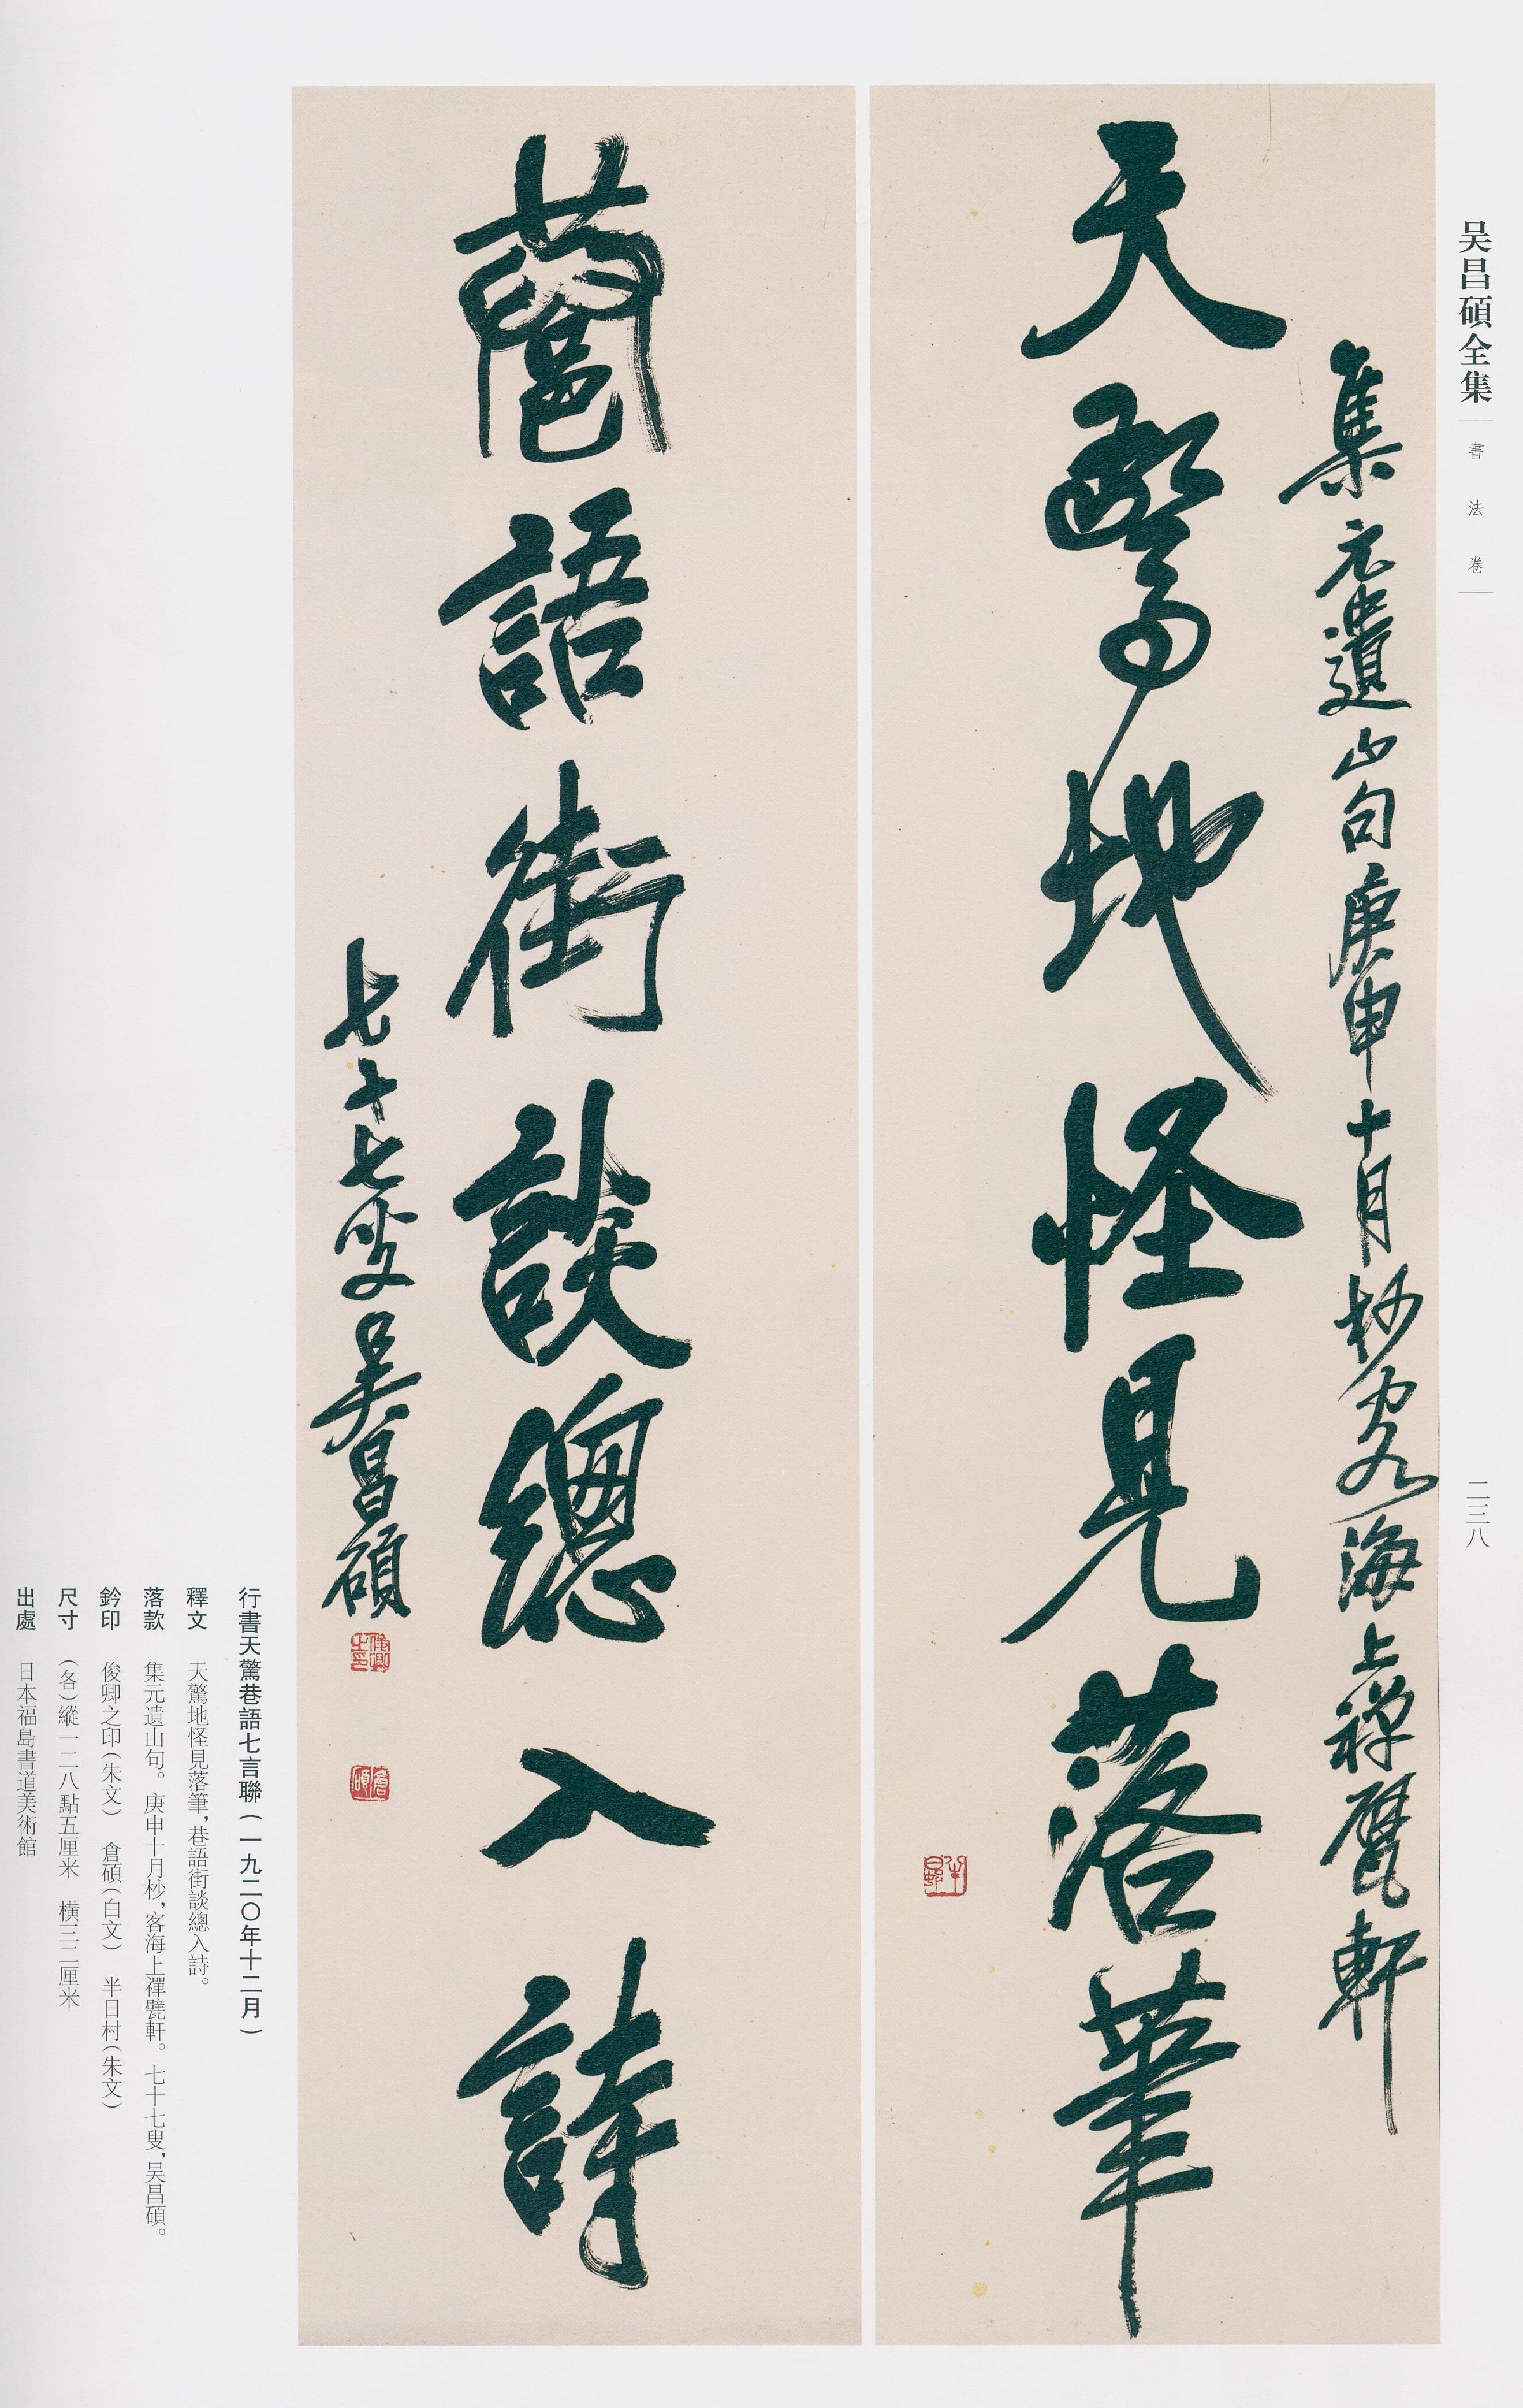 吴昌碩全集
書法卷
二三八
集元遺山句庚申十月杪客海上禅甓軒
天驚地怪見落筆
巷語街談總入詩
七十七叟吴昌碩
半日邨
俊卿之印
倉碩
行書天驚巷語七言聯(一九二〇年十二月)
釋文 天驚地怪見落筆,巷語街談總入詩。
落款 集元遺山句。庚申十月杪,客海上禪甓軒。七十七叟,吴昌碩。
鈐印 俊卿之印(朱文) 倉碩(白文) 半日村(朱文)
尺寸 (各)縱一二八點五厘米 横三二厘米
出處 日本福島書道美術館